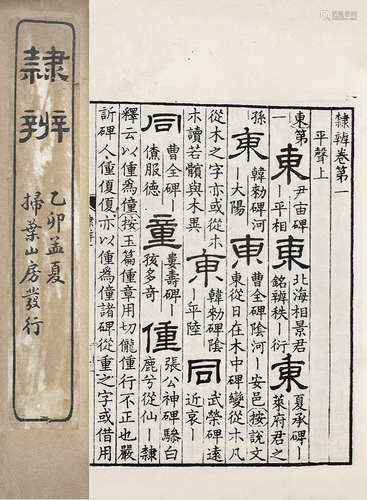 隸辨
乙卯孟夏
掃葉山房發行
隸辨卷第一
平聲上
東第一
東 尹宙碑—平相 東 北海相景君銘辤秩—衍 東 夏承碑—萊府君之
孫 東 韓勑碑河—大陽 東 曹全碑陰河—安邑按說文
東從日在木中碑變從木凡
從木之字亦或從木 東 韓勑碑陰—平陸 同 武榮碑遠近哀—
木讀若髕與木異
同 曹全碑—僚服德 童 婁壽碑—孩多奇 僮 張公神碑驂白鹿兮從仙—隸
釋云以僮為童按玉篇僮章用切儱僮行不正也嚴
訢碑人僮復復亦以僮為僮諸碑從重之字或借用